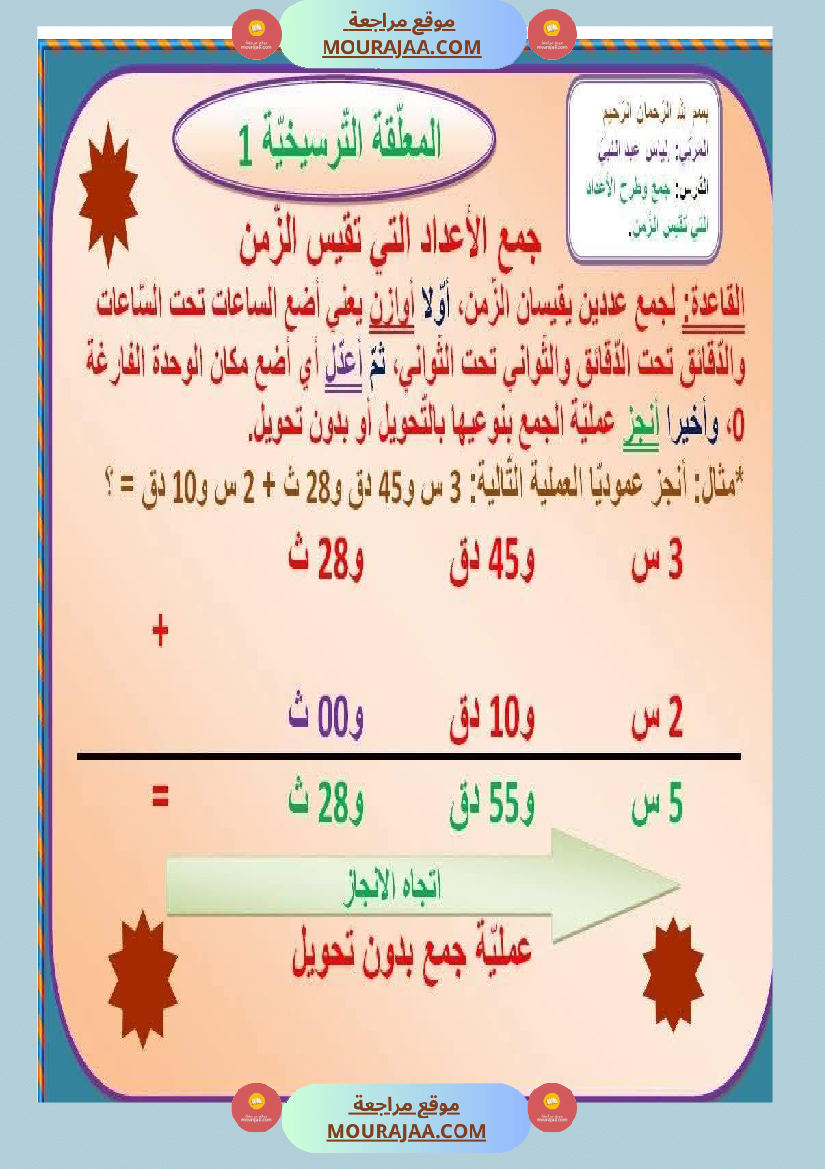 موقع مراجعة
MOURAJAA.COM
بسم الله الرّحمان الرّحيم
المربّي: إلياس عبد النبيّ
الدّرس: جمع وطرح الأعداد
التي تقيس الزّمن.
المعلّقة التّرسيخيّة 1
جمع الأعداد التي تقيس الزّمن
القاعدة: لجمع عددين يقيسان الزّمن، أوّلا أوازن يعني أضع الساعات تحت السّاعات
والدّقائق تحت الدّقائق والثّواني تحت الثّواني، ثمّ أعدّل أي أضع مكان الوحدة الفارغة
0، وأخيرا أنجز عمليّة الجمع بنوعيها بالتّحويل أو بدون تحويل.
*مثال: أنجز عموديّا العملية التّالية: 3 س و45 دق و28 ث + 2 س و10 دق = ؟
3 س و45 دق و28 ث
+
2 س و10 دق و00 ث
5 س و55 دق و28 ث =
اتجاه الانجاز
عمليّة جمع بدون تحويل
موقع مراجعة
MOURAJAA.COM